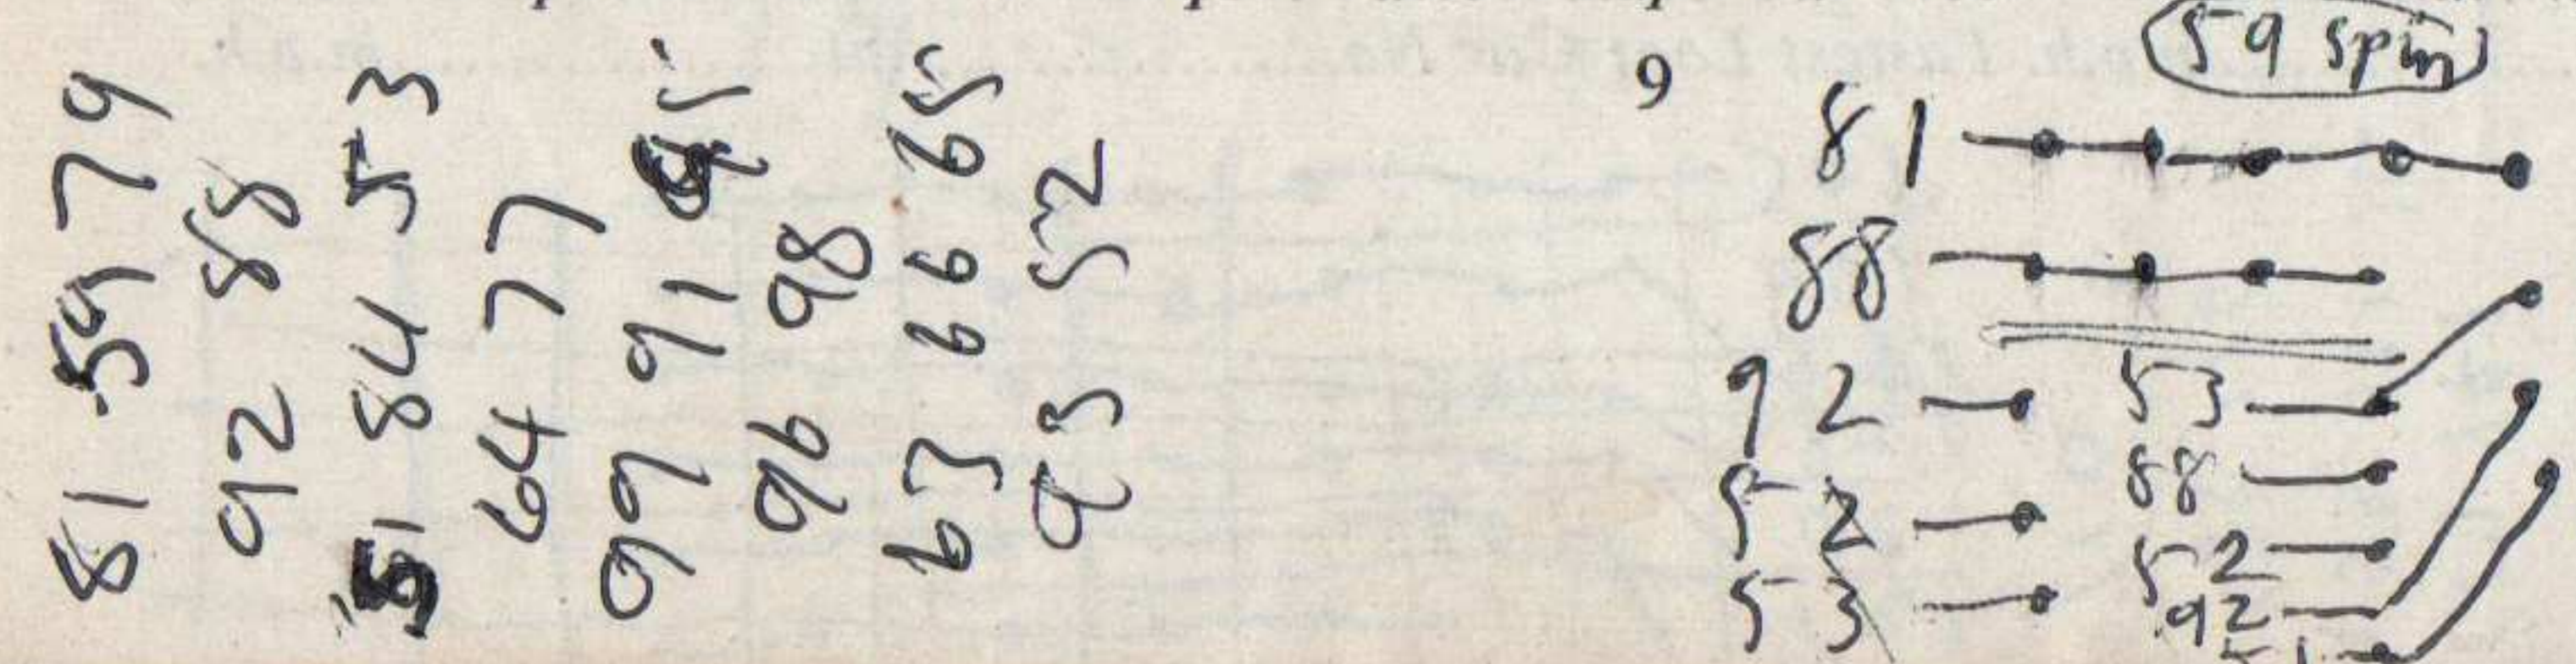 81 59 79
92 88
51 84 53
64 77
99 91
96 98
67 66 65
93 52
9
59 spin
81
88
92
52
53
53
88
52
92
51